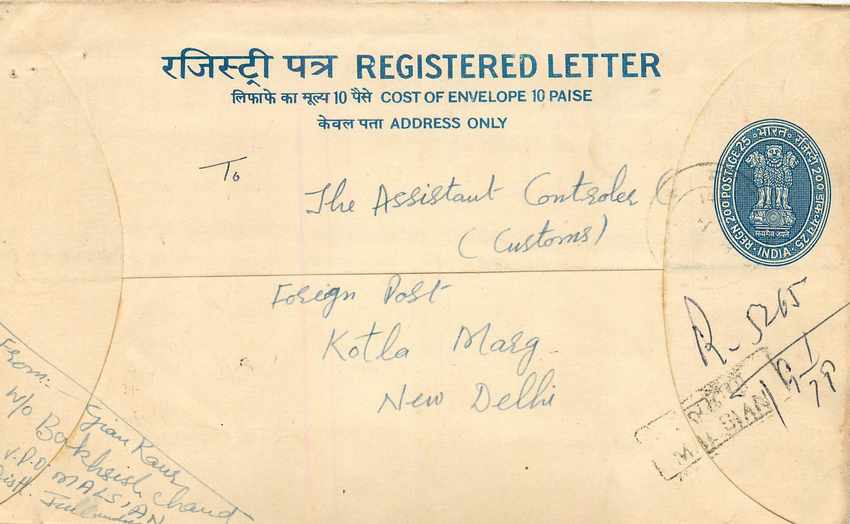 रजिस्ट्री पत्र REGISTERED LETTER
लिफाफे का मूल्य 10 पैसे COST OF ENVELOPE 10 PAISE
केवल पता ADDRESS ONLY
REGN 200 POSTAGE 25 भारत रजिस्ट्री 200 डाक-व्यय 25
सत्यमेव जयते
INDIA
To
The Assistant Controler
(Customs)
Foreign Post
Kotla Marg
New Delhi
R-5265
MALSIAN
From:-
Gian Kaur
W/o Bakhsish Chand
V.P.O. MALSIAN
Distt.